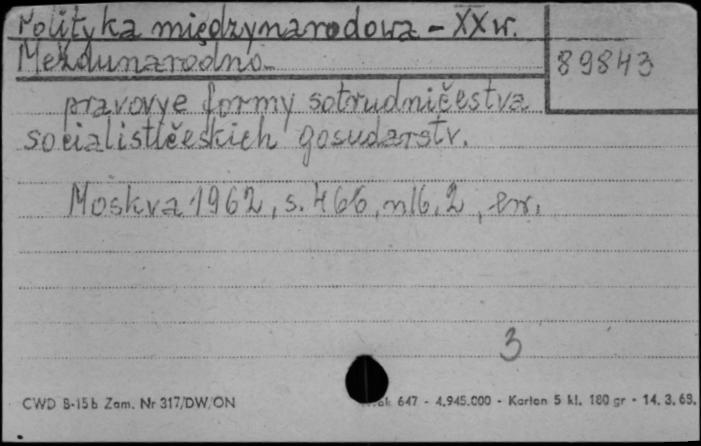 Polityka międzynarodowa - XX w.
Meždunarodno-
89843
pravovye formy sotrudničestva
socialističeskich gosudarstv.
Moskva 1962, s. 466, nlb. 2,
3
CWD B-15b Zam. Nr 317/DW/ON
647 - 4.945.000 - Karton 5 kl. 180 gr - 14. 3. 63.